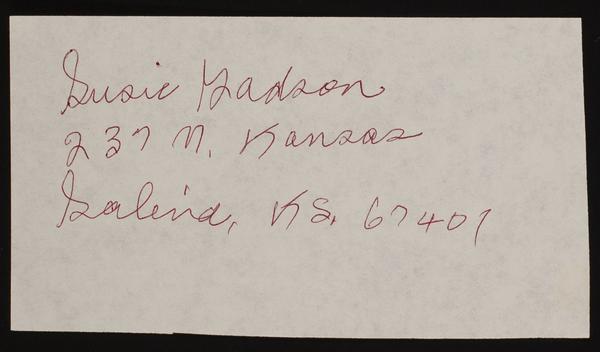 Susie Hadson
237 N. Kansas
Salina, KS. 67401